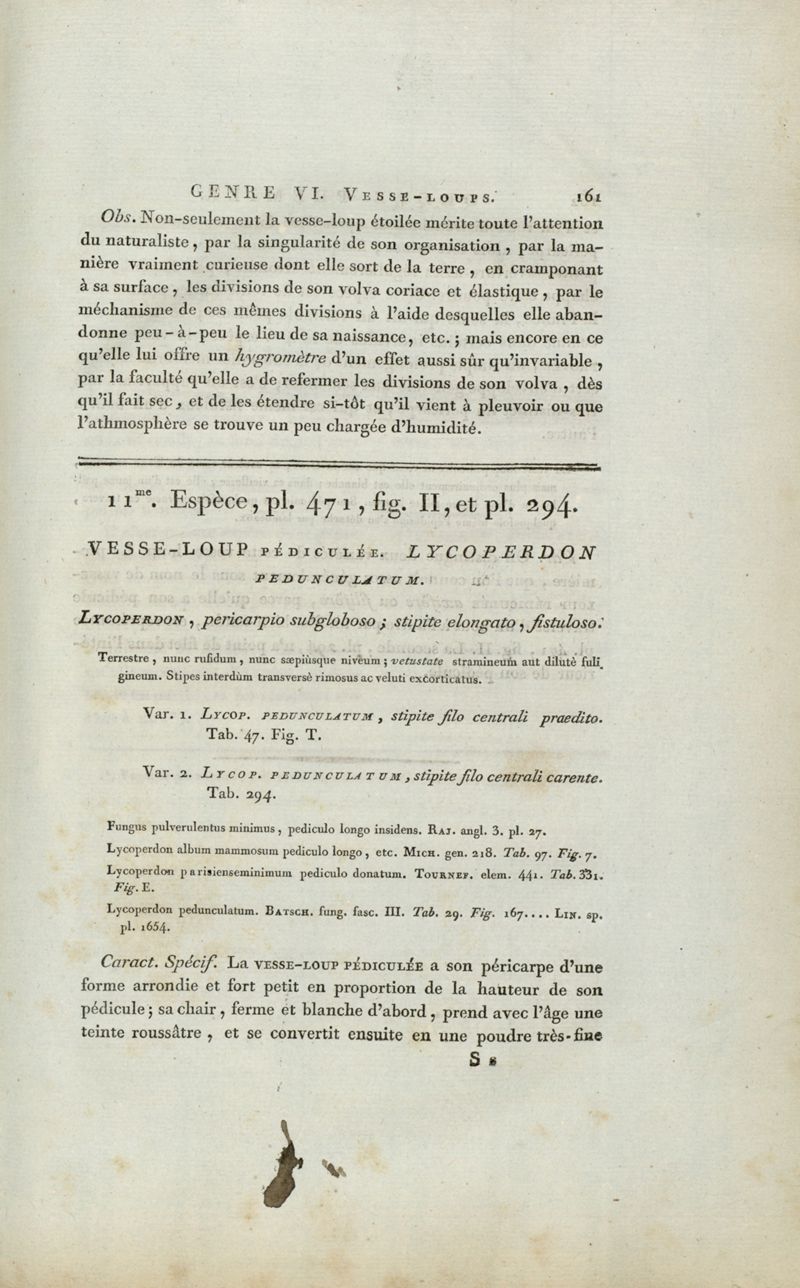 GENRE VI. VESSE-LOUPS. 161
Obs. Non-seulement la vesse-loup étoilée mérite toute l'attention
du naturaliste, par la singularité de son organisation , par la ma-
nière vraiment curieuse dont elle sort de la terre , en cramponant
à sa surface , les divisions de son volva coriace et élastique , par le
méchanisme de ces mêmes divisions à l'aide desquelles elle aban-
donne peu-à-peu le lieu de sa naissance, etc. ; mais encore en ce
qu'elle lui offre un hygromètre d'un effet aussi sûr qu'invariable ,
par la faculté qu'elle a de refermer les divisions de son volva , dès
qu'il fait sec, et de les étendre si-tôt qu'il vient à pleuvoir ou que
l'athmosphère se trouve un peu chargée d'humidité.
11me. Espèce, pl. 471, fig. II, et pl. 294.
VESSE-LOUP PÉDICULÉE. LYCOPERDON
PEDUNCULATUM.
LYCOPERDON , pericarpio subgloboso ; stipite elongato, fistuloso.
Terrestre , nunc rufidum , nunc sæpiùsque niveum ; vetustate stramineum aut dilutè fuli
gineum. Stipes interdùm transversè rimosus ac veluti excorticatus.
Var. 1. LYCOP. PEDUNCULATUM , stipite filo centrali praedito.
Tab. 47. Fig. T.
Var. 2. LYCOP. PEDUNCULATUM , stipite filo centrali carente.
Tab. 294.
Fungus pulverulentus minimus , pediculo longo insidens. RAJ. angl. 3. pl. 27.
Lycoperdon album mammosum pediculo longo , etc. MICH. gen. 218. Tab. 97. Fig. 7.
Lycoperdon parisienseminimum pediculo donatum. TOURNEF. elem. 441. Tab. 331.
Fig. E.
Lycoperdon pedunculatum. BATSCH. fung. fasc. III. Tab. 29. Fig. 167.... LIN. sp.
pl. 1654.
Caract. Spécif. La VESSE-LOUP PÉDICULÉE a son péricarpe d'une
forme arrondie et fort petit en proportion de la hauteur de son
pédicule ; sa chair , ferme et blanche d'abord , prend avec l'âge une
teinte roussâtre , et se convertit ensuite en une poudre très-fine
S